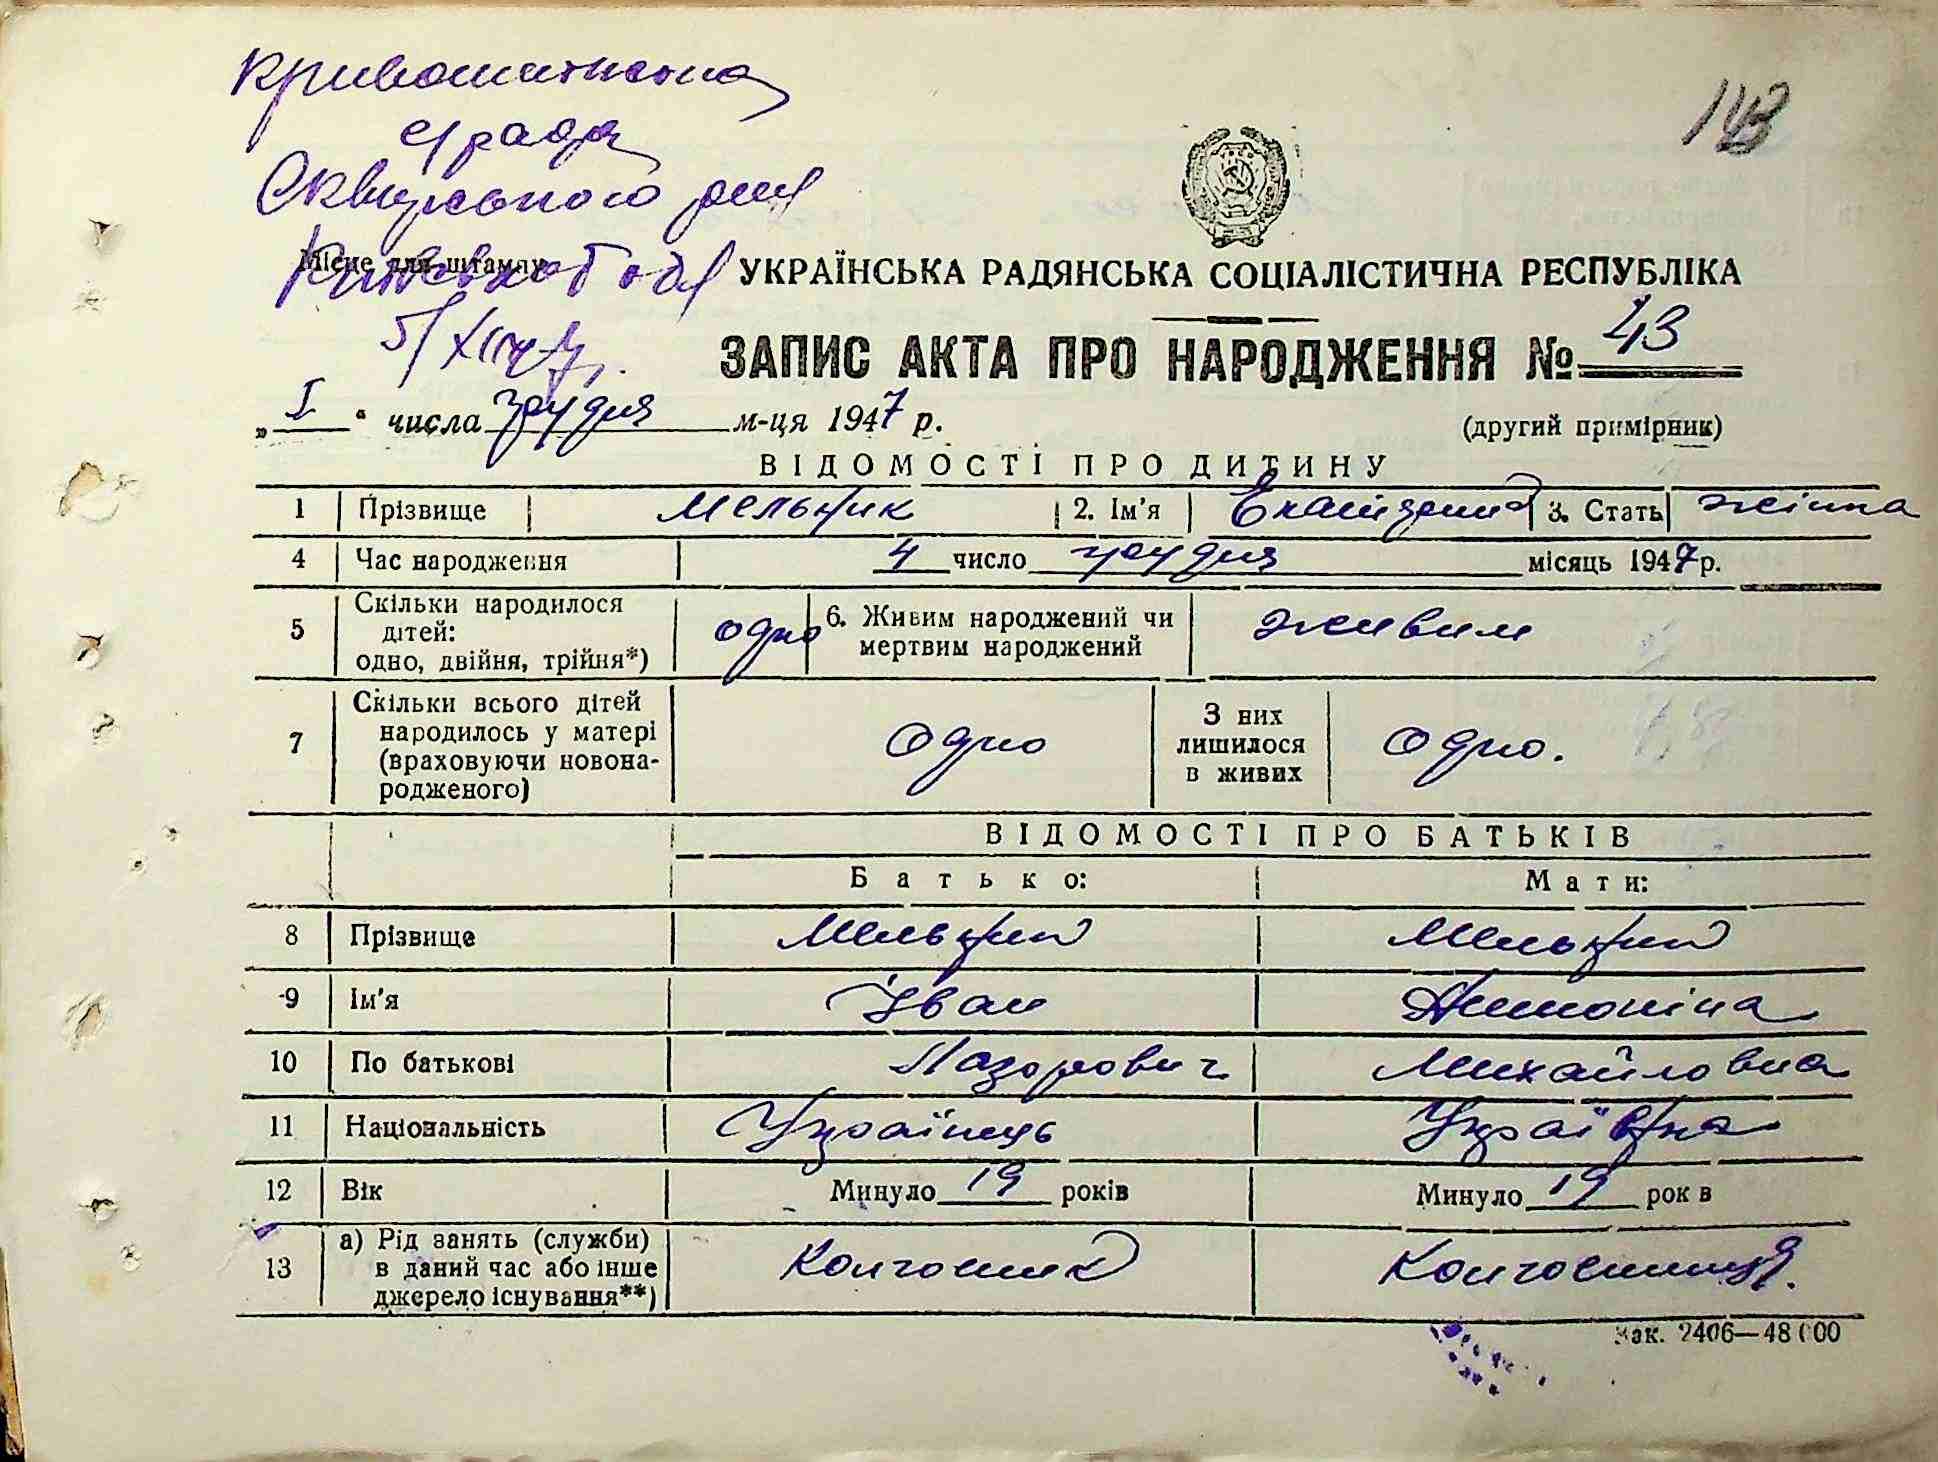 Кривошиїнська
с/рада
Сквирського р-ну
Місце для штампу
Київської обл
5/XII 47 р.
143
УКРАЇНСЬКА РАДЯНСЬКА СОЦІАЛІСТИЧНА РЕСПУБЛІКА
ЗАПИС АКТА ПРО НАРОДЖЕННЯ № 43
„ I " числа грудня м-ця 1947 р.
(другий примірник)
ВІДОМОСТІ ПРО ДИТИНУ
1 Прізвище Мельник 2. Ім'я 3. Стать жіноча
4 Час народження 4 число грудня місяць 1947 р.
5 Скільки народилося дітей: одно, двійня, трійня*) одно 6. Живим народжений чи мертвим народжений живим
7 Скільки всього дітей народилось у матері (враховуючи новонародженого) одно З них лишилося в живих одно.
ВІДОМОСТІ ПРО БАТЬКІВ
Батько: Мати:
8 Прізвище Мельник Мельник
9 Ім'я Іван Антоніна
10 По батькові Лазорович Михайловна
11 Національність Українець Українка
12 Вік Минуло 19 років Минуло 19 рок в
13 а) Рід занять (служби) в даний час або інше джерело існування**) Колгоспник Колгоспниця.
Зак. 2406—48000